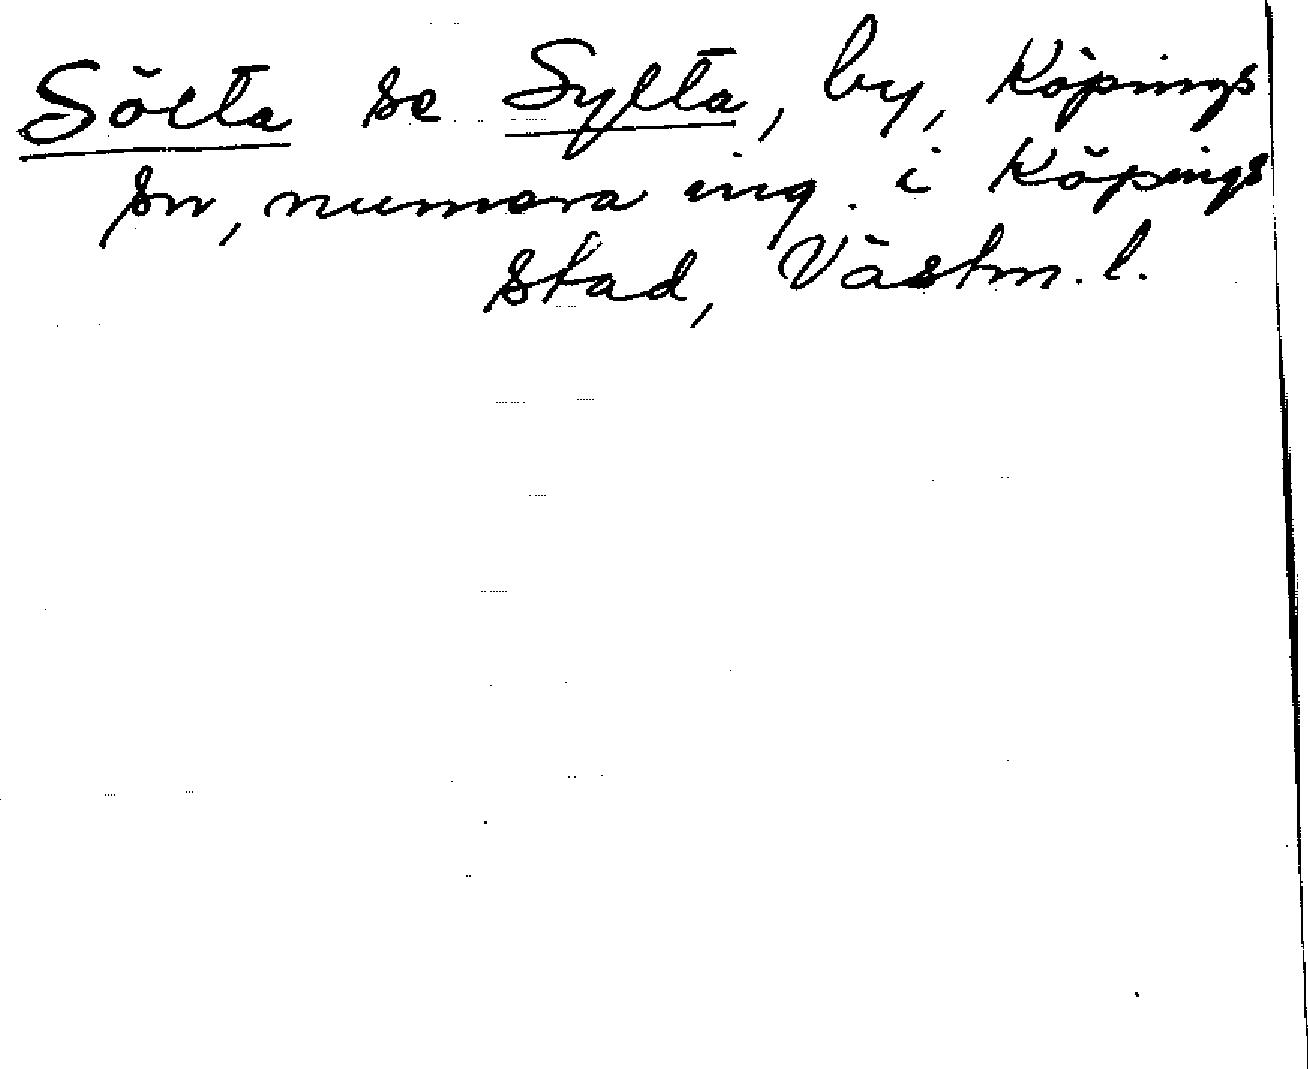 Sölta se Sylta, by, Köpings
sn, numera ing. i Köpings
stad, Västm. l.